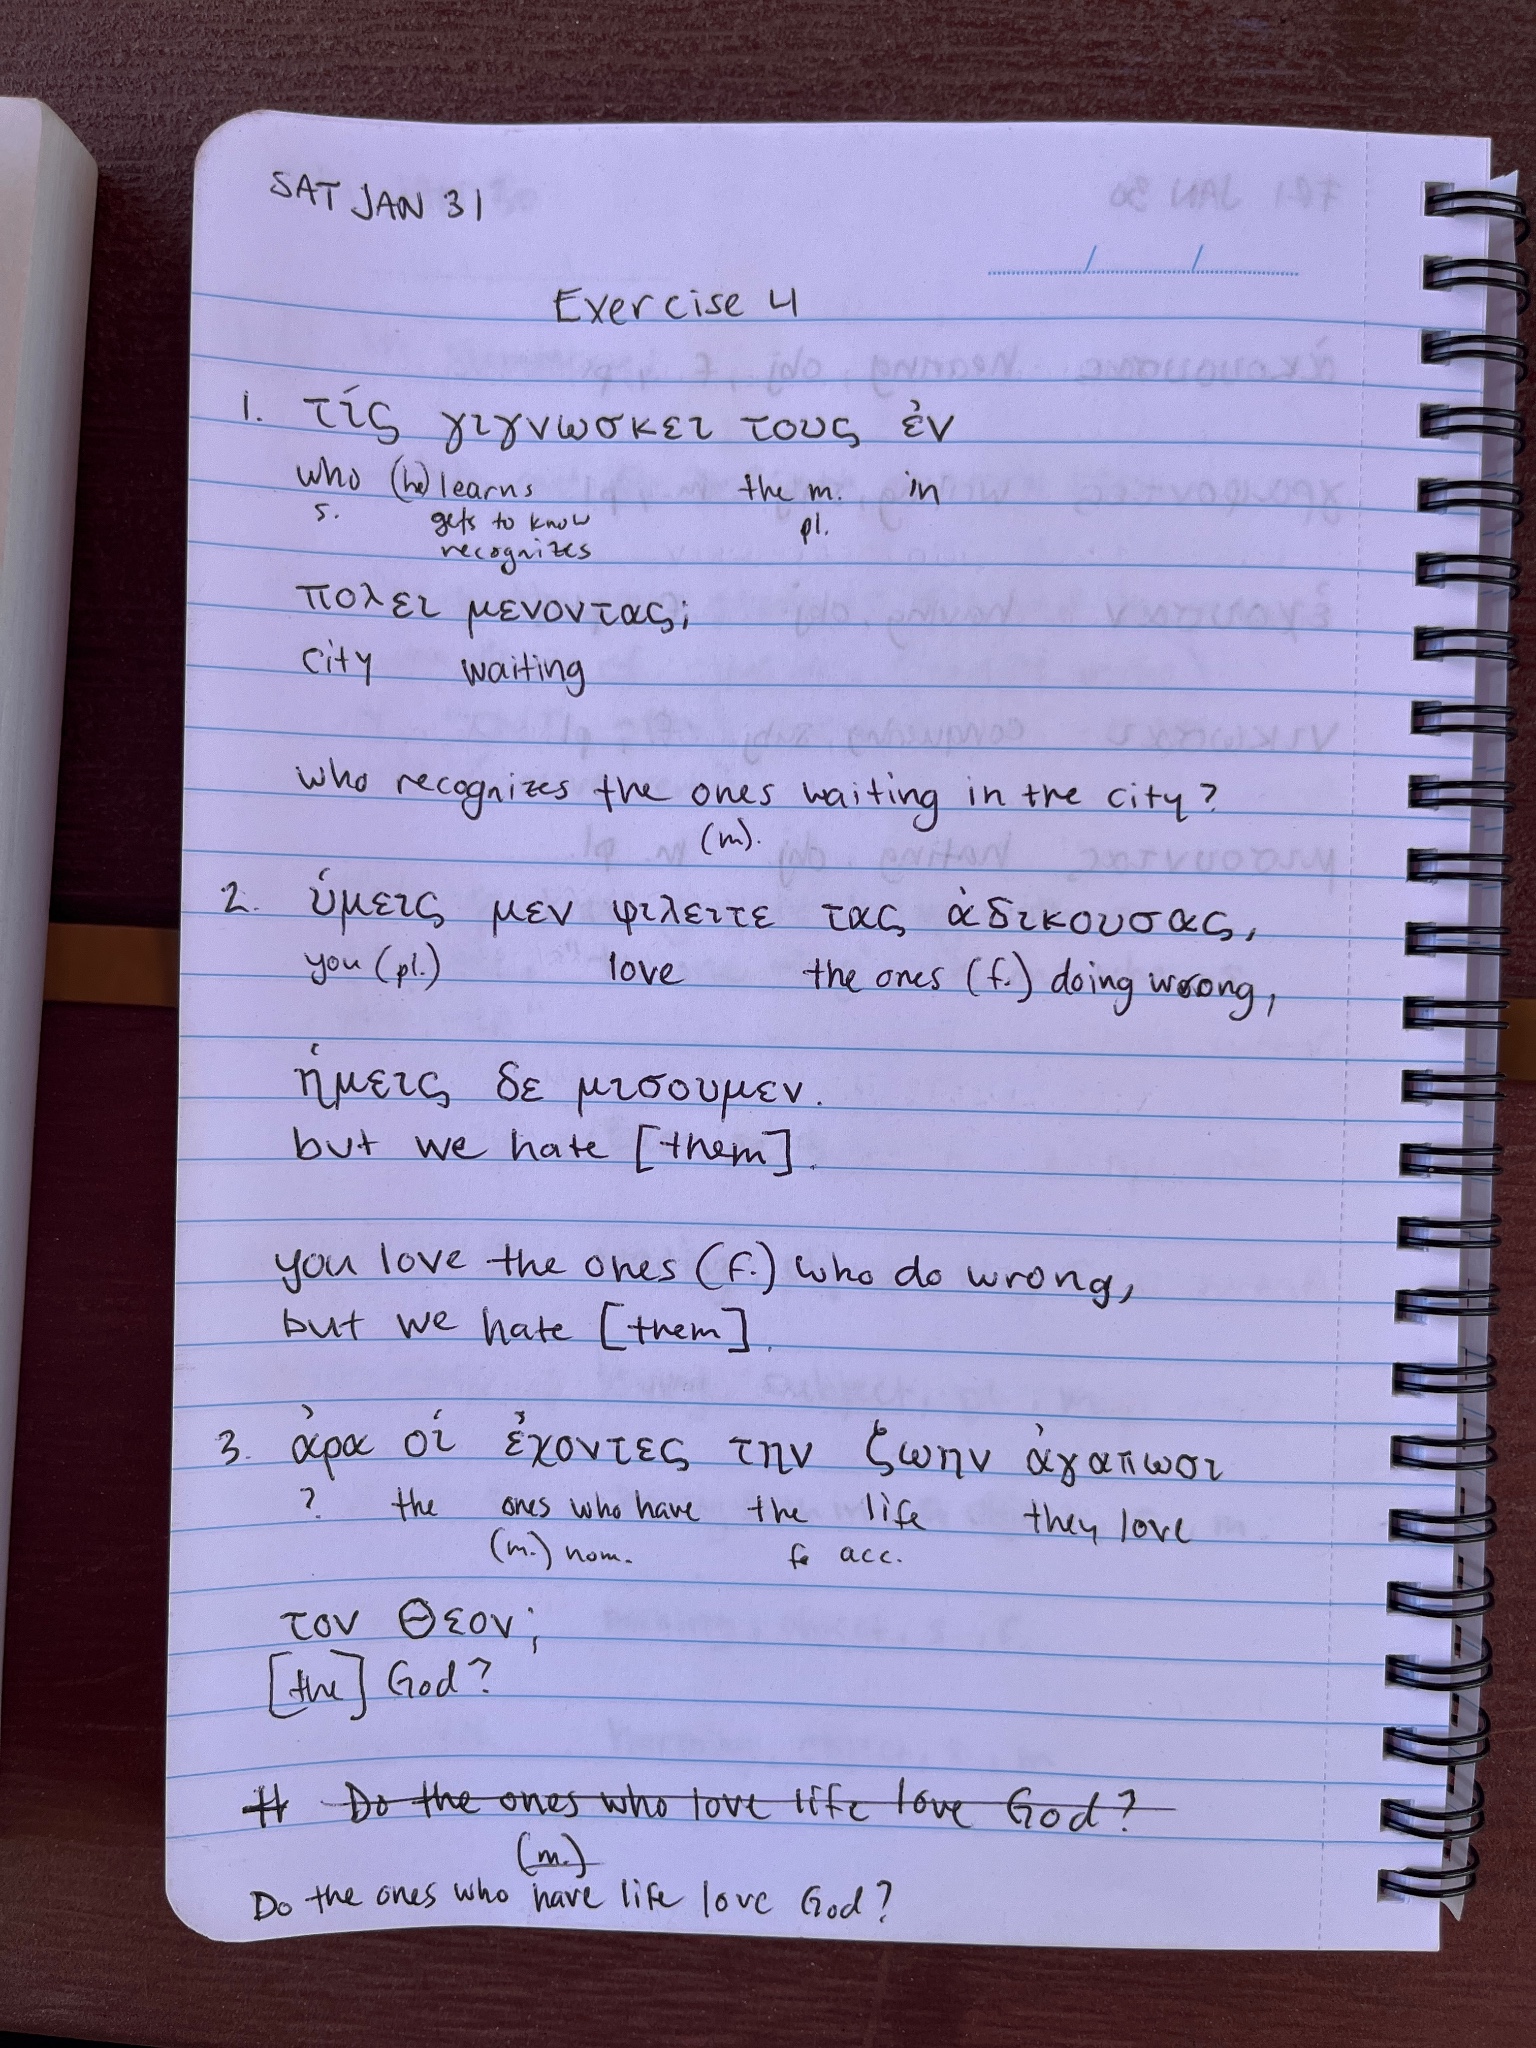 SAT JAN 31
Exercise 4
1. τίς γιγνωσκει τους ἐν
who (he) learns the m. in
s. gets to know pl.
recognizes
πολει μενοντας;
city waiting
who recognizes the ones waiting in the city?
(m).
2. ὑμεις μεν φιλειτε τας ἀδικουσας,
you (pl.) love the ones (f.) doing wrong,
ἡμεις δε μισουμεν.
but we hate [them].
you love the ones (f.) who do wrong,
but we hate [them].
3. ἀρα οἱ ἐχοντες την ζωην ἀγαπωσι
? the ones who have the life they love
(m.) nom. f. acc.
τον Θεον;
[the] God?
Do the ones who love life love God?
(m.)
Do the ones who have life love God?